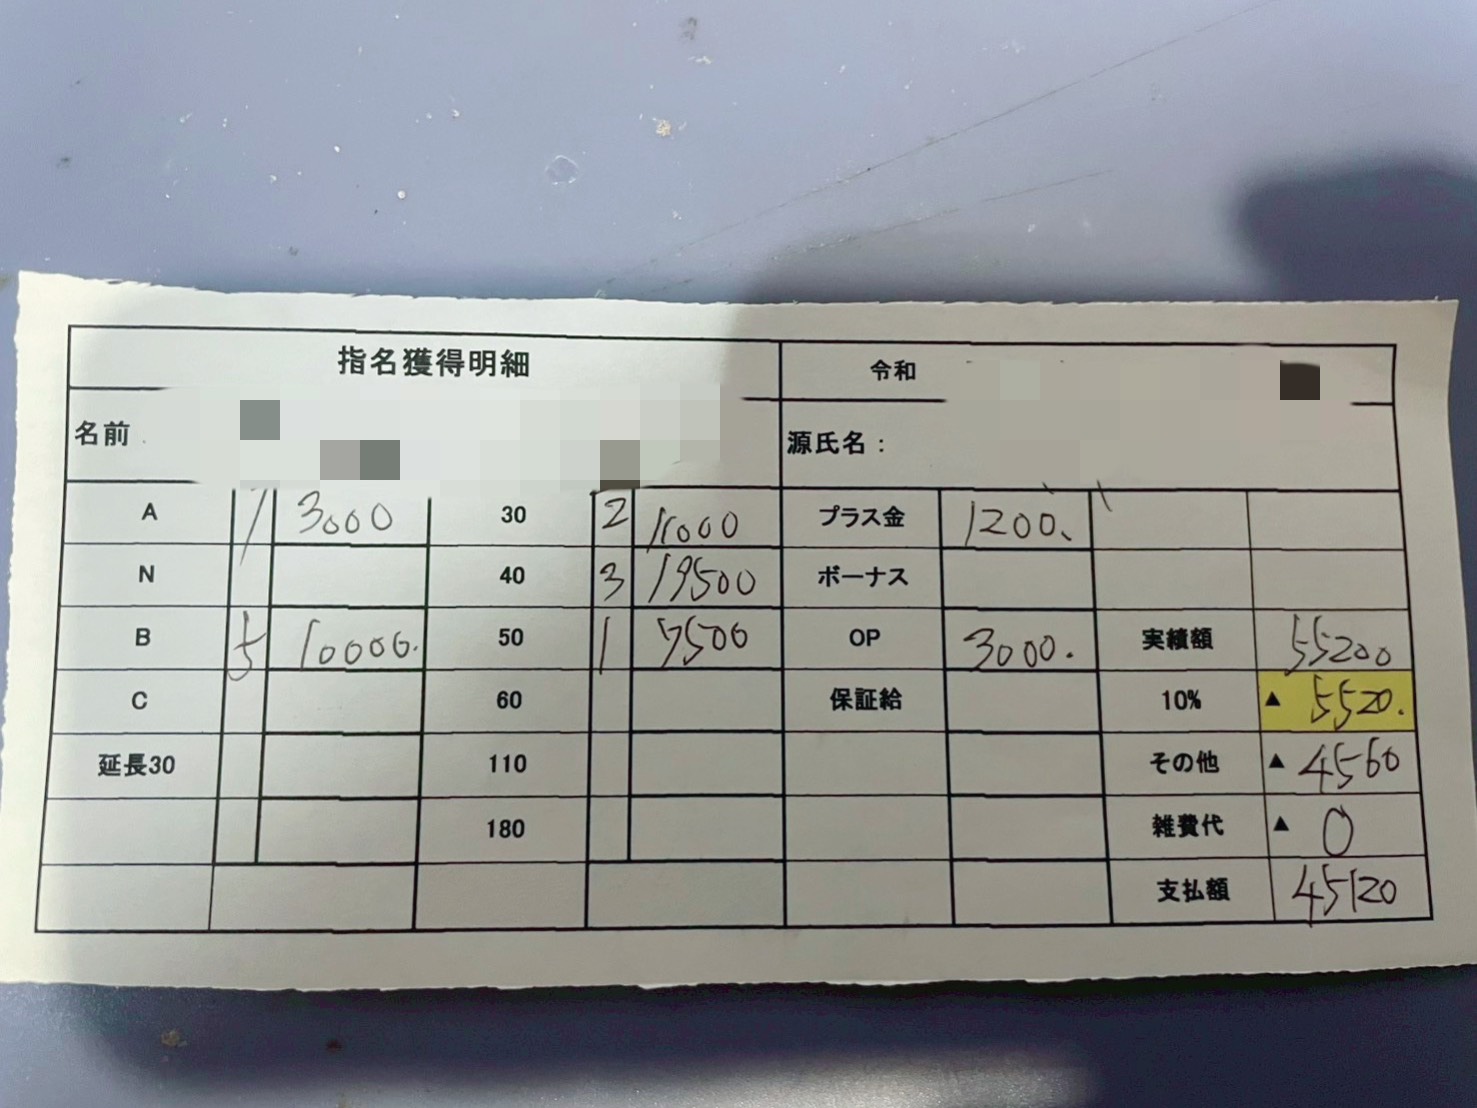 指名獲得明細 令和
名前 源氏名：
A 1 3000 30 2 11000 プラス金 1200.
N 40 3 19500 ボーナス
B 5 10000. 50 1 7500 OP 3000. 実績額 55200
C 60 保証給 10% ▲ 5520.
延長30 110 その他 ▲ 4560
180 雑費代 ▲ 0
支払額 45120